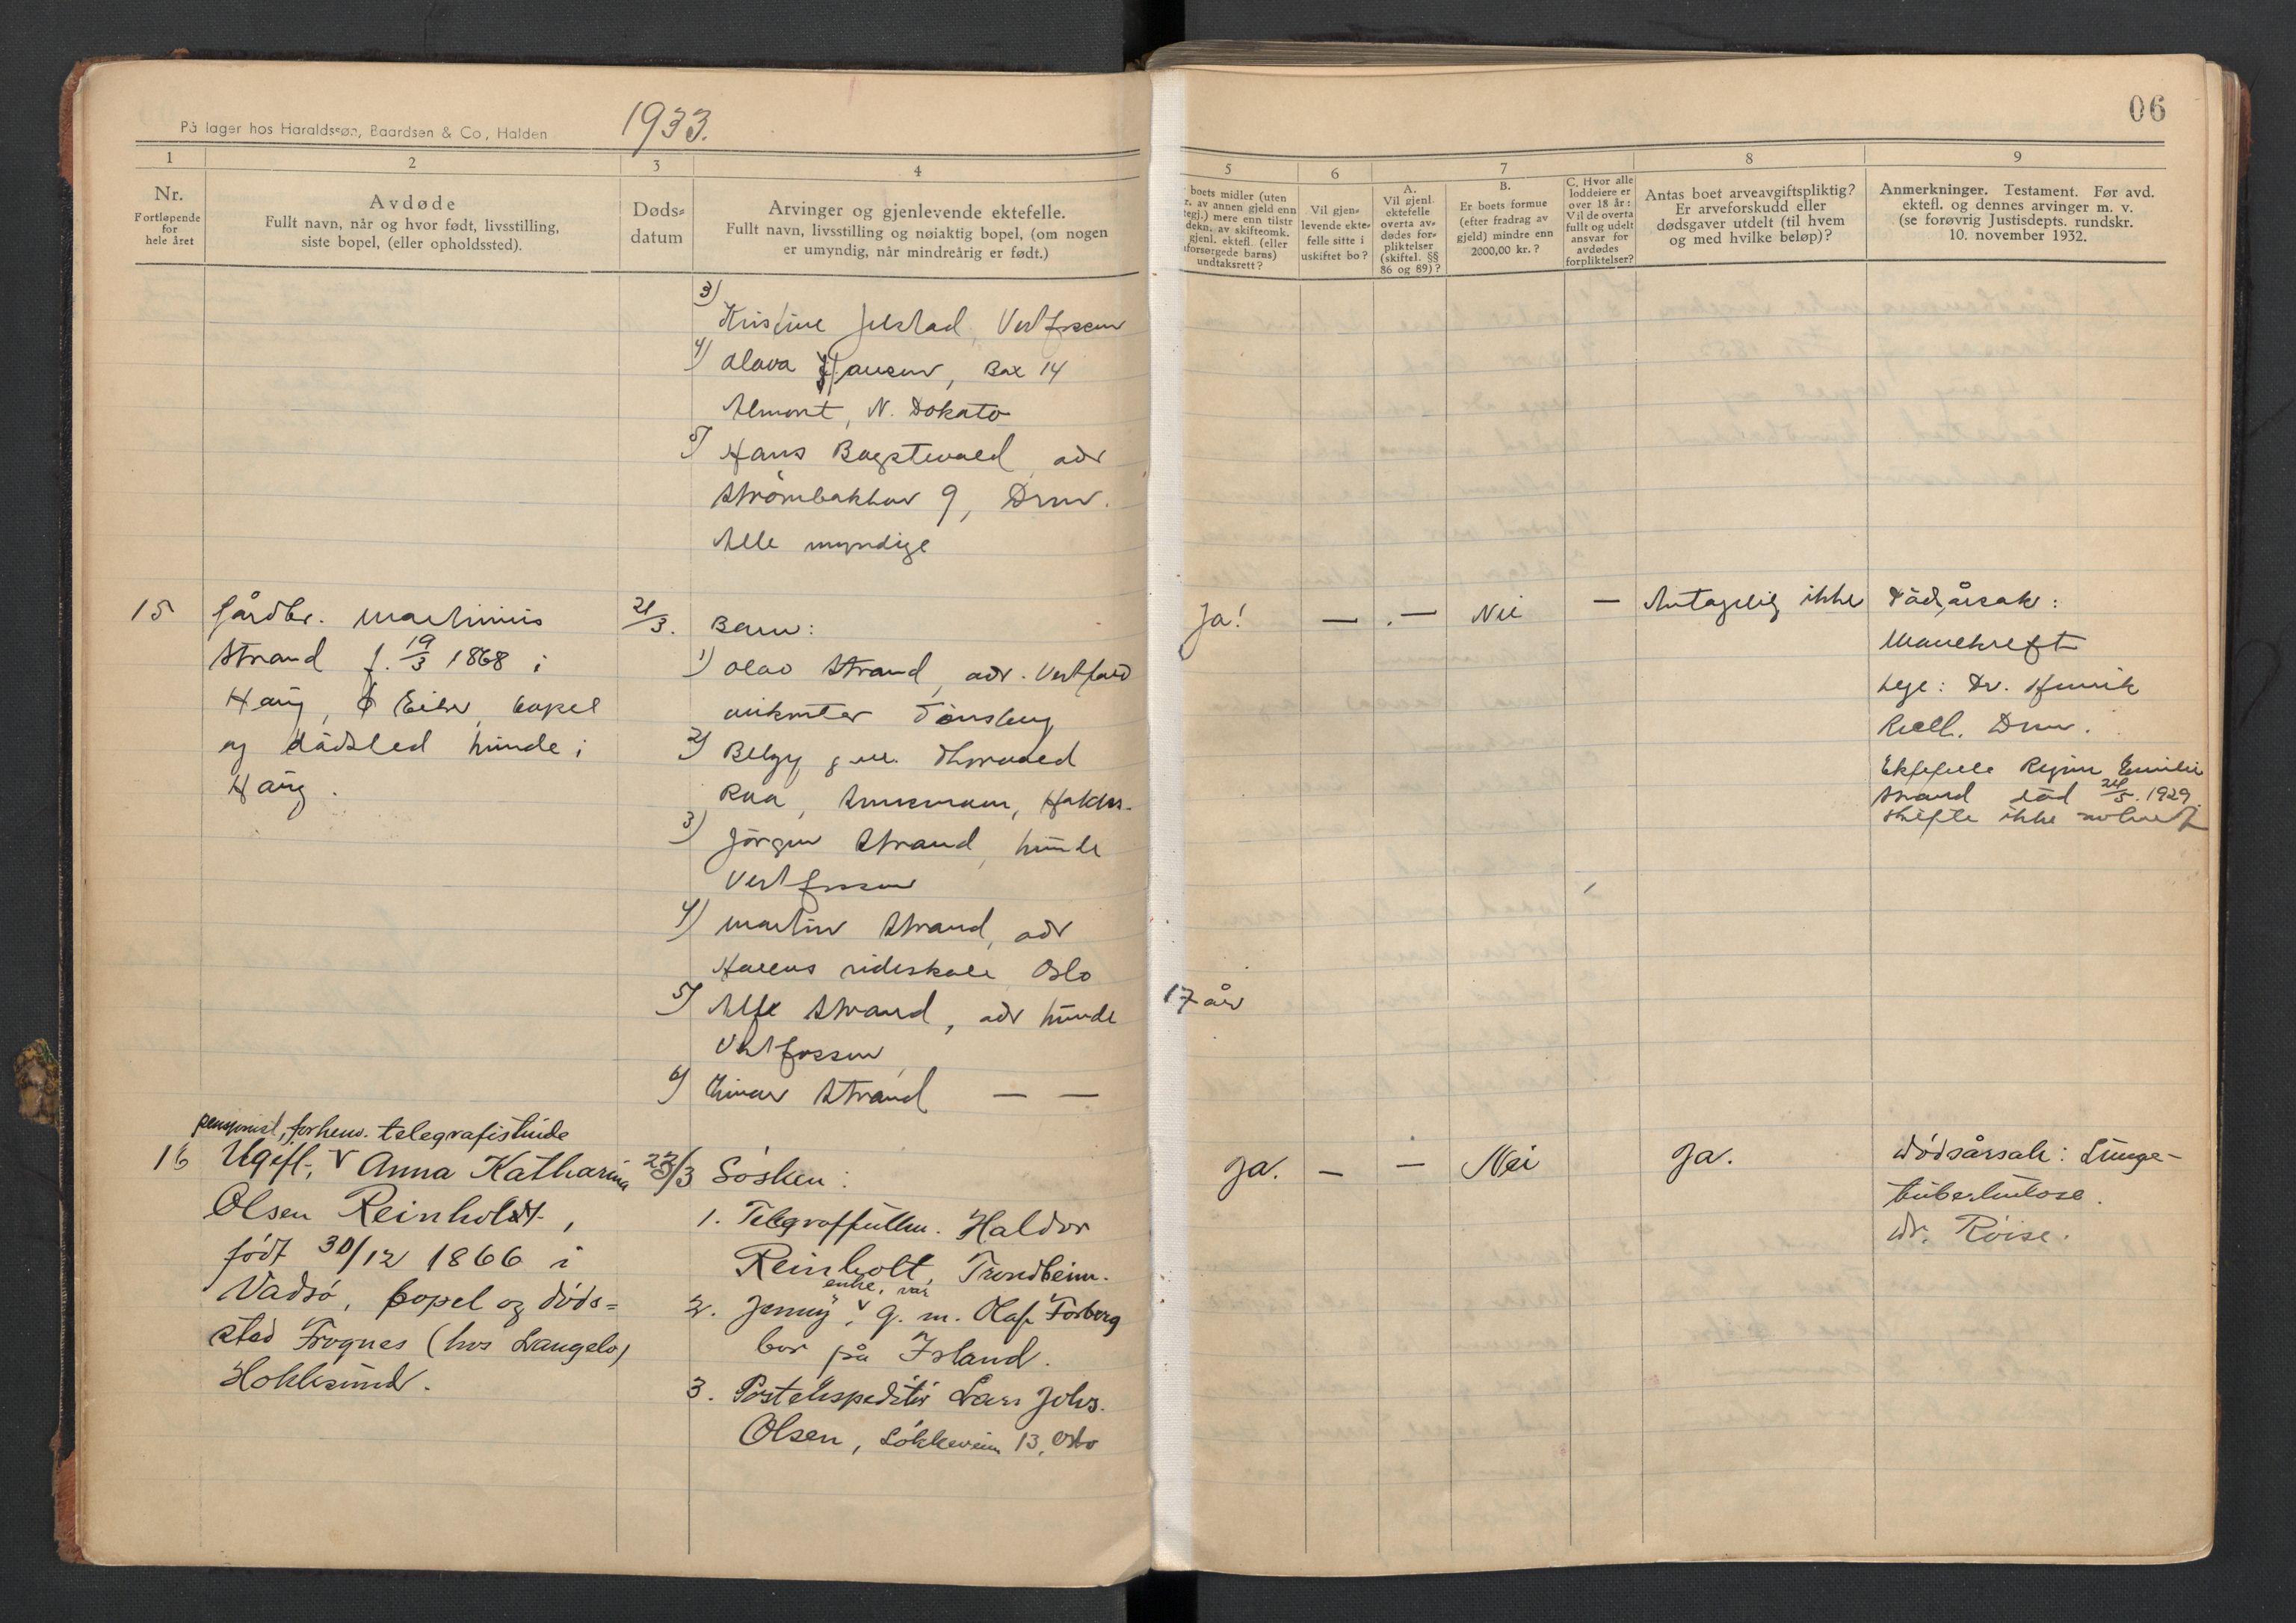 På lager hos Haraldssøn, Baardsen & Co., Halden
1933.
06
1
2
3
4
5
6
7
8
9
Nr.
Fortløpende
for
hele året
Avdøde
Fullt navn, når og hvor født, livsstilling,
siste bopel, (eller opholdssted).
Døds=
datum
Arvinger og gjenlevende ektefelle.
Fullt navn, livsstilling og nøiaktig bopel, (om nogen
er umyndig, når mindreårig er født.)
boets midler (uten
r. av annen gjeld enn
egj.) mere enn tilstr
dekn. av skifteomk.
gjenl. ektefl. (eller
forsørgede barns)
undtaksrett?
Vil gjen=
levende ekte=
felle sitte i
uskiftet bo?
A.
Vil gjenl.
ektefelle
overta av=
dødes for=
pliktelser
(skiftel. §§
86 og 89)?
B.
Er boets formue
(efter fradrag av
gjeld) mindre enn
2000,00 kr.?
C. Hvor alle
loddeiere er
over 18 år:
Vil de overta
fullt og udelt
ansvar for
avdødes
forpliktelser?
Antas boet arveavgiftspliktig?
Er arveforskudd eller
dødsgaver utdelt (til hvem
og med hvilke beløp)?
Anmerkninger. Testament. Før avd.
ektefl. og dennes arvinger m. v.
(se forøvrig Justisdepts. rundskr.
10. november 1932.
3)
Kristine Jelstad, Vestfossen
4) Olava Hansen, Box 14
Almont, N. Dokato
5) Hans adr
Strømbakken 9, Drm.
Alle myndige
15
Gårdbr. Martinius
Strand f. 19/3 1868 i
Haug, Ø Eiker, bopel
og dødsted Lunde i
Haug.
21/3.
Barn:
1) Olav Strand, adr. Vestfold
Tønsberg
2)
Raa, Halden.
3) Jörgen Strand,
Vestfossen
4) Martin Strand, adr
rideskole Oslo
5) Alfe Strand, adr
Vestfossen
6) Einar Strand — —
Ja!
—
. —
Nei
—
Antagelig ikke
Dødsårsak:
Mavekreft
Lege: Dr. Henrik
Drm.
Ektefelle Regine Emilie
Strand død 24/5. 1929.
Skifte ikke
17 år
pensjonist, forhenv. telegrafistinde
16
Ugift, v Anna Katharina
Olsen Reinholdt,
født 30/12 1866 i
Vadsö, bopel og døds=
sted Frognes (hos Langelo)
Hokksund.
23/3
Søsken:
1. Telegraffullm. Haldor
Reinholt, Trondheim.
enke, var
2. Jenny, v g. m. Olaf Forberg
bor på Island.
3. Postekspeditør Lars Johs.
Olsen, Løkkeveien 13, Oslo
Ja.
—
—
Nei
Ja.
Dødsårsak: Lunge-
tuberkulose.
Dr. Röise.